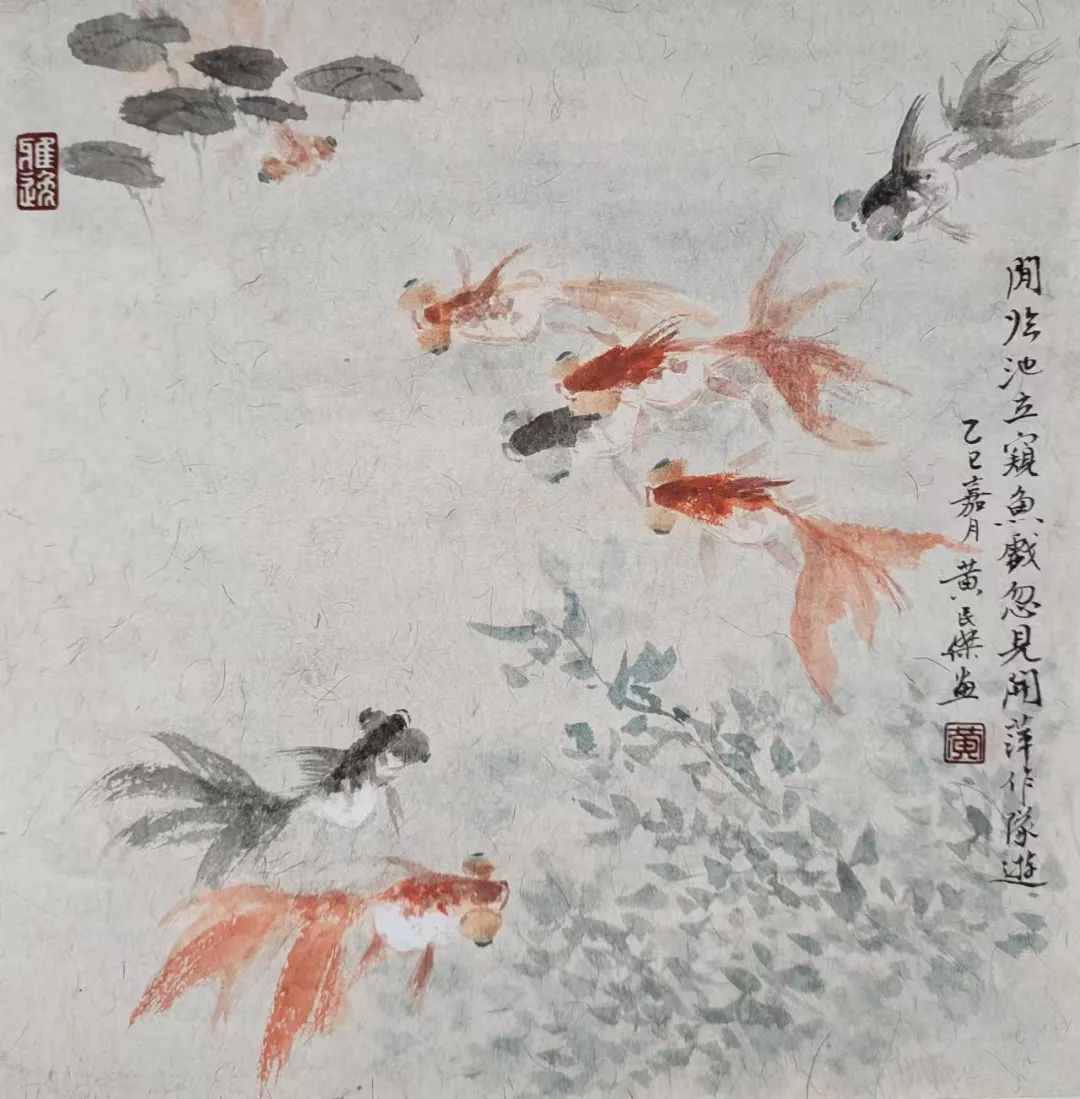 閒臨池立窺魚戲忽見開萍作隊遊
乙巳嘉月 黃民傑畫
黃
雅逸